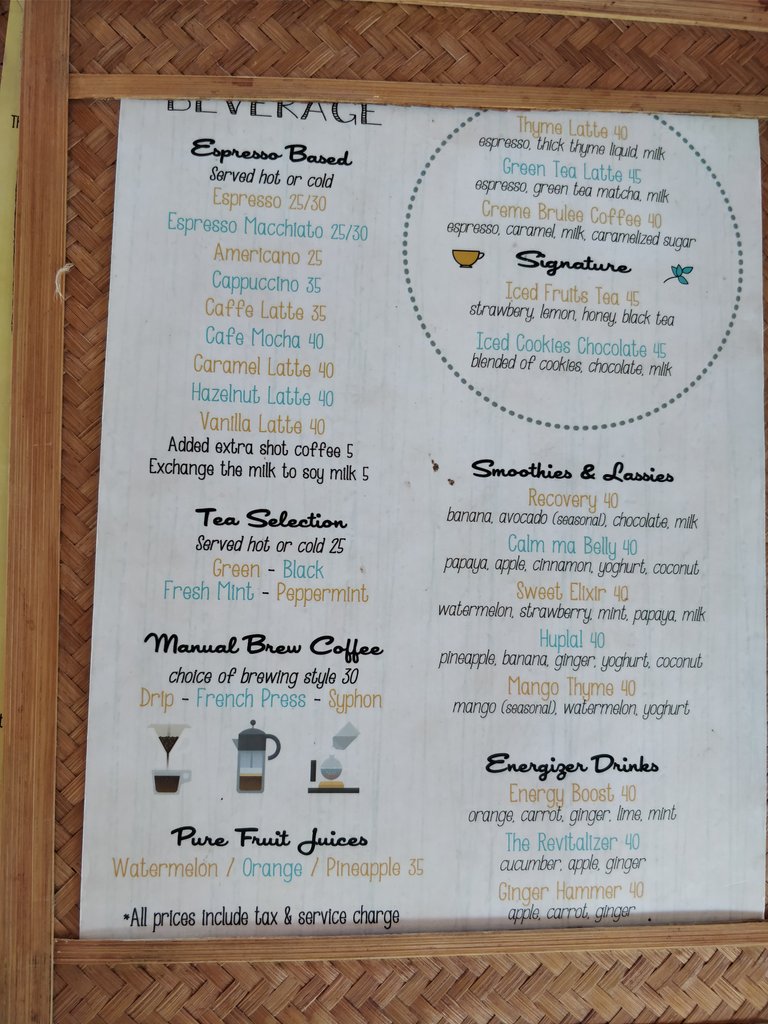 BEVERAGE
Espresso Based
Served hot or cold
Espresso 25/30
Espresso Macchiato 25/30
Americano 25
Cappuccino 35
Caffe Latte 35
Cafe Mocha 40
Caramel Latte 40
Hazelnut Latte 40
Vanilla Latte 40
Added extra shot coffee 5
Exchange the milk to soy milk 5
Tea Selection
Served hot or cold 25
Green - Black
Fresh Mint - Peppermint
Manual Brew Coffee
choice of brewing style 30
Drip - French Press - Syphon
Pure Fruit Juices
Watermelon / Orange / Pineapple 35
*All prices include tax & service charge
Thyme Latte 40
espresso, thick thyme liquid, milk
Green Tea Latte 45
espresso, green tea matcha, milk
Creme Brulee Coffee 40
espresso, caramel, milk, caramelized sugar
Signature
Iced Fruits Tea 45
strawbery, lemon, honey, black tea
Iced Cookies Chocolate 45
blended of cookies, chocolate, milk
Smoothies & Lassies
Recovery 40
banana, avocado (seasonal), chocolate, milk
Calm ma Belly 40
papaya, apple, cinnamon, yoghurt, coconut
Sweet Elixir 40
watermelon, strawberry, mint, papaya, milk
Hupla! 40
pineapple, banana, ginger, yoghurt, coconut
Mango Thyme 40
mango (seasonal), watermelon, yoghurt
Energizer Drinks
Energy Boost 40
orange, carrot, ginger, lime, mint
The Revitalizer 40
cucumber, apple, ginger
Ginger Hammer 40
apple, carrot, ginger